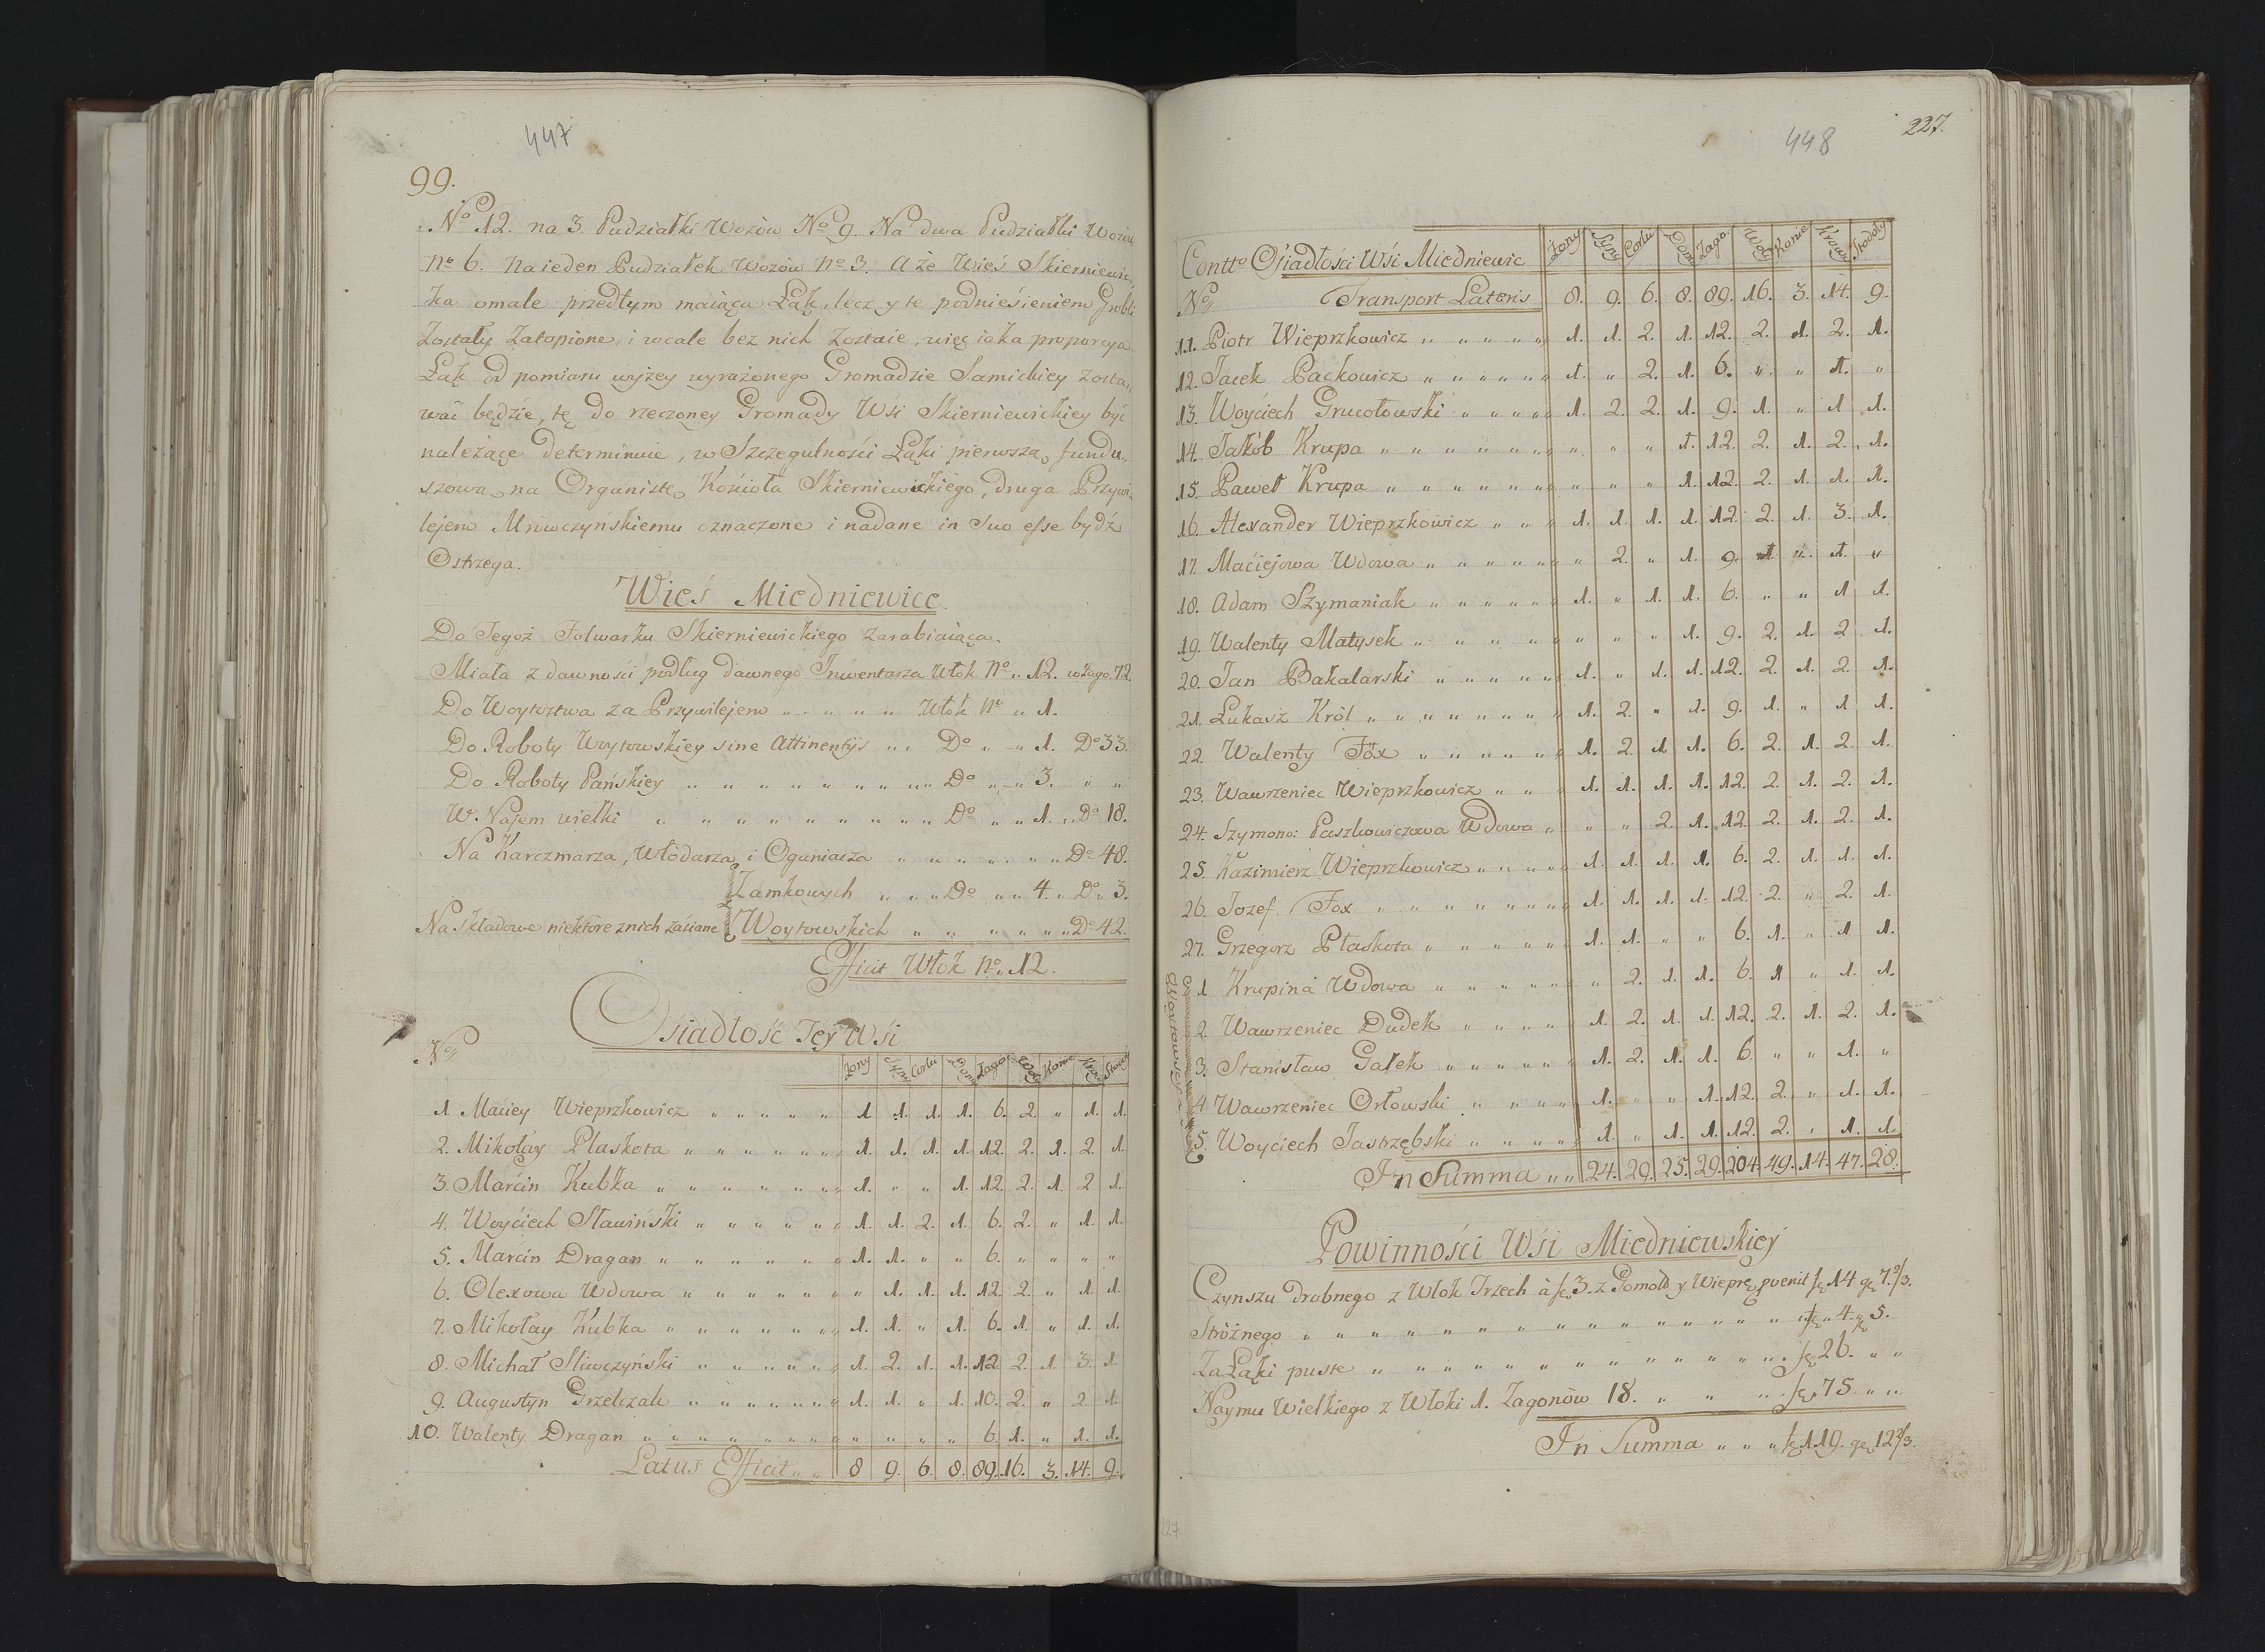 447
99.
No 12. na 3. Pudziałki Wozow No 9. Na dwa Pudziałki Wozow
No 6. Na ieden Pudziałek Wozow No 3. A że Wieś Skierniewic,
ka omale przedtym maiąca Łąk, lecz y te podnieśieniem Grobli
Zostały Zatopione, i wcale bez nich Zostaie, więc iaka proporcya
Łąk od pomiaru wyżey wyrażonego Gromadzie Samickiey zosta,
wać będzie, tę do rzeczoney Gromady Wśi Skierniewickiey być
należącę determinuie, w Szczegulnosći Łąki pierwszą, fundu,
szową na Organistę Kośćioła Skierniewickiego, druga Przywi,
lejem Mrowczyńskiemu oznaczone i nadane in Suo esse bydź
Ostrzega.
Wieś Miedniewice
Do Tegoż Folwarku Skierniewickiego Zarabiaiąca.
Miała z dawnosći podług dawnego Inwentarza Włok No „ 12. w Zago 72.
Do Woytostwa za Przywilejem „ „ „ „ „ Włok No „ 1.
Do Roboty Woytowskiey sine Attinentijs „ „ Do „ „ 1. Do 33.
Do Roboty Pańskiey „ „ „ „ „ „ „ „ Do „ „ 3. „ „
W Najem wielki „ „ „ „ „ „ „ „ „ Do „ „ 1. „ Do 18.
Na Karczmarza, Włodarza, i Oganiacza „ „ „ „ „ „ Do 48.
Zamkowych „ „ „ Do „ „ 4. „ Do „ 3.
Na Składowe niektore z nich zaśiane Woytowskich „ „ „ „ „ „ Do 42.
Efficit Włok No „ 12.
Osiadłość Tey Wśi
No Żony Syny Corki Domy Zago. Woły Konie Krowy Stodoły
1. Maćiey Wieprzkowicz „ „ „ „ „ 1 1. 1. 1. 6. 2. „ 1. 1.
2. Mikołay Plaskota „ „ „ „ „ „ 1. 1. 1. 1. 12. 2. 1. 2. 1
3. Marćin Kubka „ „ „ „ „ „ „ 1. „ „ 1. 12. 2. 1. 2 1.
4. Woyćiech Sławiński „ „ „ „ „ 1. 1. 2. 1. 6. 2. „ 1. 1.
5. Marćin Dragan „ „ „ „ „ „ „ 1. 1. „ „ 6. „ „ „ „
6. Olexowa Wdowa „ „ „ „ „ „ „ „ 1. 1. 1. 12. 2. „ 1. 1.
7. Mikołay Kubka „ „ „ „ „ „ 1. 1. „ 1. 6. 1. „ 1. 1.
8. Michał Sliwczyński „ „ „ „ „ 1. 2. 1. 1. 12. 2. 1. 3. 1.
9. Augustyn Grzelczak „ „ „ „ „ „ 1. 1. „ 1. 10. 2. „ 2 1.
10. Walenty Dragan „ „ „ „ „ „ „ „ „ „ „ 6. 1. „ 1. 1.
Latus Efficit „ „ 8 9. 6. 8. 89. 16. 3. 14. 9.
448
227.
Contto Ośiadłośći Wśi Miedniewic Żony Syny Corki Domy Zago. Woły Konie Krowy Stodoły
No Transport Lateris 8. 9. 6. 8. 89. 16. 3. 14. 9.
11. Piotr Wieprzkowicz „ „ „ „ „ 1. 1. 2. 1. 12. 2. 1. 2. 1.
12. Jacek Packowicz „ „ „ „ „ „ 1. „ 2. 1. 6. „ „ 1. „
13. Woyćiech Grucołowski „ „ „ „ 1. 2. 2. 1. 9. 1. „ 1 1.
14. Jakób Krupa „ „ „ „ „ „ „ „ „ „ 1. 12. 2. 1. 2. 1.
15. Paweł Krupa „ „ „ „ „ „ „ „ „ „ 1. 12. 2. 1. 1. 1.
16. Alexander Wieprzkowicz „ „ „ 1. 1. 1. 1. 12. 2. 1. 3. 1.
17. Maćiejowa Wdowa „ „ „ „ „ „ „ 2. „ 1. 9. 1 „ 1. „
18. Adam Szymaniak „ „ „ „ „ „ 1. „ 1. 1. 6. „ „ 1 1.
19. Walenty Matysek „ „ „ „ „ „ „ „ 1. 9. 2. 1. 2 1.
20. Jan Bakalarski „ „ „ „ „ „ 1. „ 1. 1. 12. 2. 1. 2. 1.
21. Łukasz Król „ „ „ „ „ „ „ „ 1. 2. „ 1. 9. 1. „ 1 1.
22. Walenty Fox „ „ „ „ „ „ 1. 2. 1 1. 6. 2. 1. 2. 1.
23. Wawrzeniec Wieprzkowicz „ „ „ 1. 1. 1. 1. 12. 2. 1. 2. 1.
24. Szymono: Paszkowiczowa Wdowa „ „ „ 2. 1. 12. 2. 1. 2. 1.
25. Kazimierz Wieprzkowicz „ „ „ „ 1. 1. 1. 1. 6. 2. 1. 1. 1.
26. Jozef Fox „ „ „ „ „ „ „ „ 1. 1. 1. 1. 12. 2. „ 2. 1.
27. Grzegorz Płaskota „ „ „ „ „ „ 1. 1. „ „ 6. 1. „ 1 1.
1 Krupina Wdowa „ „ „ „ „ „ „ 2. 1. 1. 6. 1 „ 1. 1.
2. Wawrzeniec Dudek „ „ „ „ „ 1. 2. 1. 1. 12. 2. 1. 2. 1.
3. Stanisław Gałek „ „ „ „ „ „ 1. 2. 1. 1. 6. „ „ 1. „
4. Wawrzeniec Orłowski „ „ „ „ „ 1. „ „ 1. 12. 2. „ 1. 1.
5. Woyćiech Jastrzębski „ „ „ „ „ 1. „ 1. 1. 12. 2. „ 1. 1.
Woytowscy
In Summa „ „ 24. 29. 25. 29. 204. 49. 14. 47. 28.
Powinnośći Wśi Miedniewskiey
Czynszu drobnego z Włok Trzech à fl 3. z Pomoł y Wieprz. fl 14 gr 7 2/3.
Stróżnego „ „ „ „ „ „ „ „ „ „ „ „ „ „ fl „ 4. gr 5.
Za Łąki puste „ „ „ „ „ „ „ „ „ „ „ „ fl 26. „ „
Naymu Wielkiego z Włoki 1. Zagonów 18. „ „ „ fl 75 „ „
In Summa „ „ „ fl 119. gr 12 2/3.
227